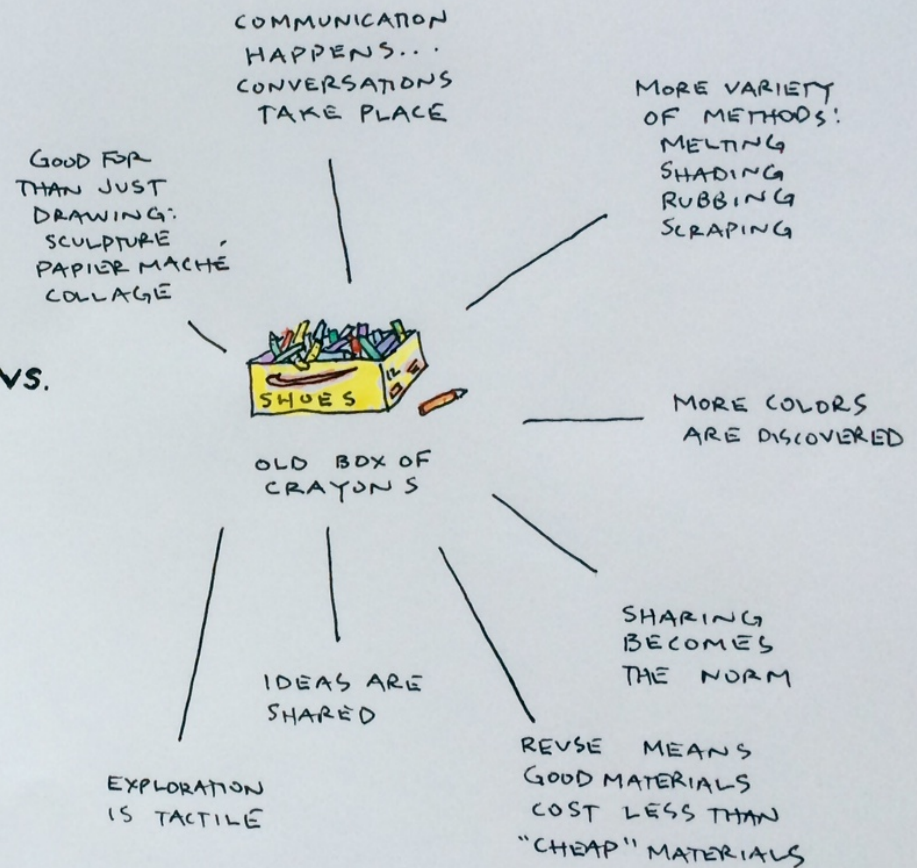 COMMUNICATION
HAPPENS...
CONVERSATIONS
TAKE PLACE
MORE VARIETY
OF METHODS:
MELTING
SHADING
RUBBING
SCRAPING
GOOD FOR
THAN JUST
DRAWING:
SCULPTURE
PAPIER MACHÉ
COLLAGE
VS.
SHOES
12
OLD BOX OF
CRAYONS
MORE COLORS
ARE DISCOVERED
SHARING
BECOMES
THE NORM
IDEAS ARE
SHARED
REUSE MEANS
GOOD MATERIALS
COST LESS THAN
"CHEAP" MATERIALS
EXPLORATION
IS TACTILE